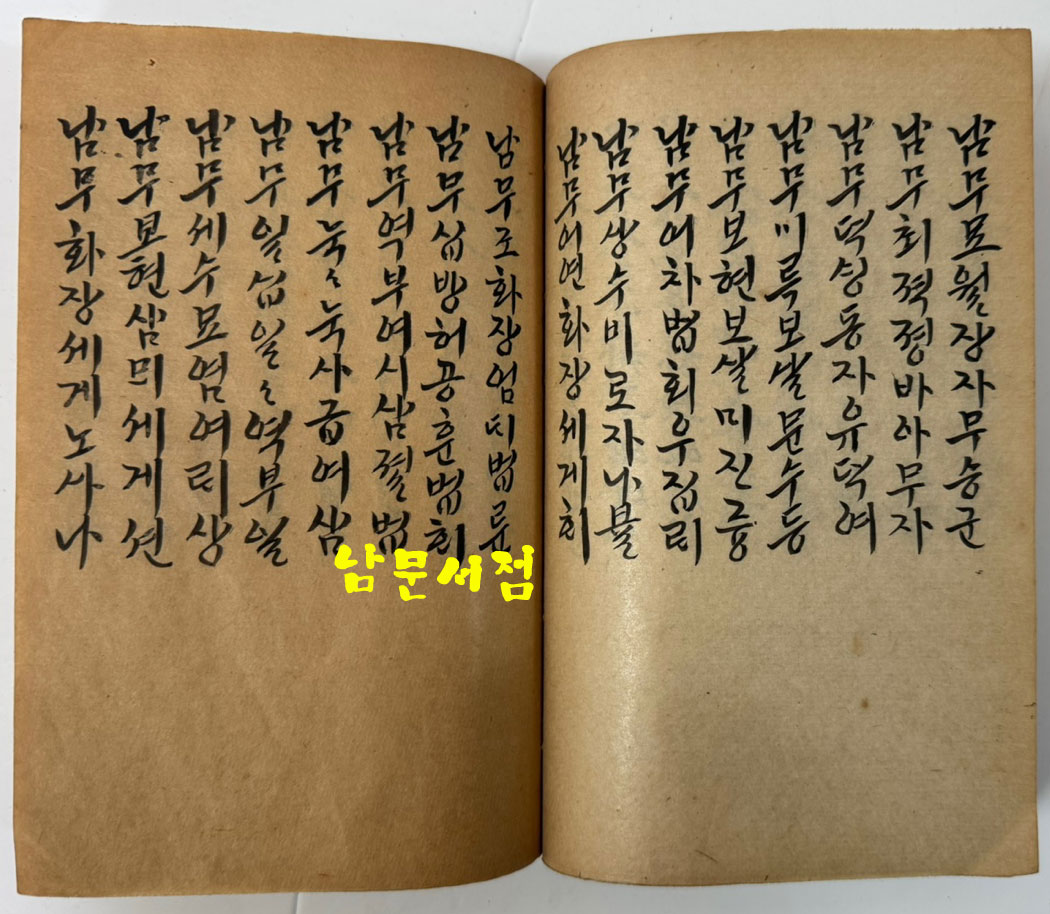 남무묘월장자무승군
남무최젹졍바아무자
남무덕셩동자유덕여
남무미륵보살문수등
남무보현보살미진즁
남무어차법회우집ᄅᆡ
남무상수비로자나불
남무어연화장세게회
남무조화장엄ᄃᆡ법륜
남무십방허공훈법회
남무역부여시삼졀법
남무눅〻눅사급여삼
남무일십일〻역부일
남무세수묘염여ᄅᆡ상
남무보현삼ᄆᆡ세게션
남무화장세게노사나
남문서점